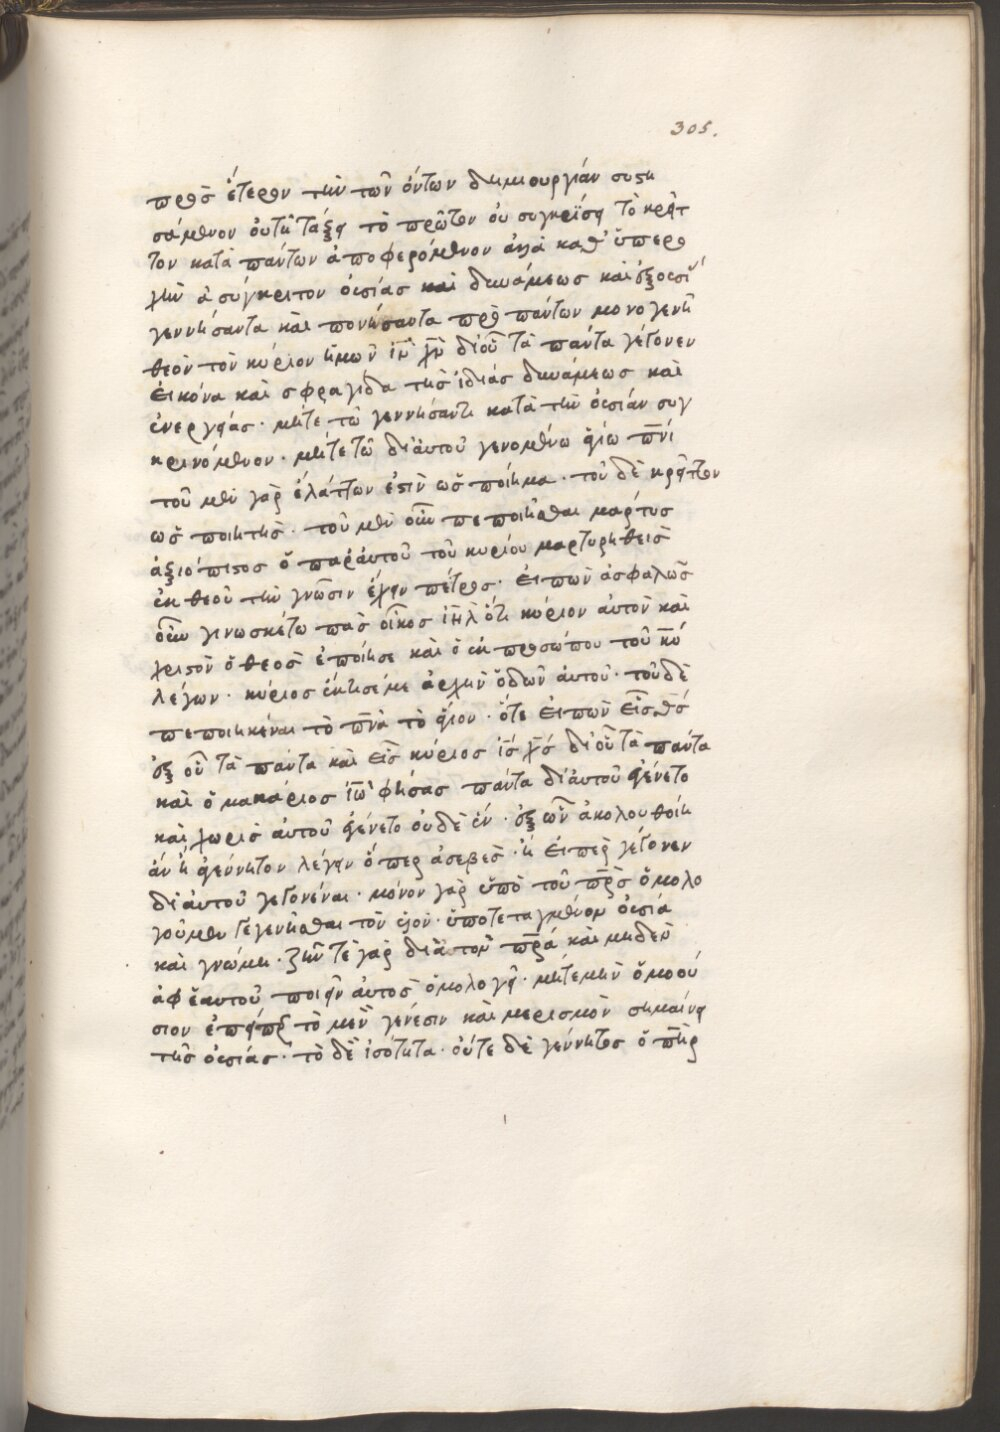 305.
πρὸς ἕτερον τὴν τῶν ὄντων δημιουργίαν συστη
σάμενον οὐ τῆ τάξει τὸ πρῶτον οὐ συγκρίσει τὸ κρεῖτ
τον κατὰ πάντων ἀποφερόμενον ἀλλὰ καθ' ὑπερο
χὴν ἀσύγκριτον οὐσίας καὶ δυνάμεως καὶ ἐξουσί
γεννήσαντα καὶ ποιήσαντα πρὸ πάντων μονογενῆ
θεὸν τὸν κύριον ἡμῶν ἰν χν δι οὗ τὰ πάντα γέγονεν
εἰκόνα καὶ σφραγίδα τῆς ἰδίας δυνάμεως καὶ
ἐνεργείας· μήτε τῶ γεννήσαντι κατὰ τὴν οὐσίαν συγ
κρινόμενον· μήτε τῶ δι αὐτοῦ γενομένω ἁγίω πνι
τοῦ μὲν γὰρ ἐλάττων ἐστὶν ὡς ποίημα· τοῦ δὲ κρείττων
ὡς ποιητής· τοῦ μὲν οὖν πεποιῆσθαι μάρτυς
ἀξιόπιστος ὁ παρ αὐτοῦ τοῦ κυρίου μαρτυρηθεὶς
ἐκ θεοῦ τὴν γνῶσιν ἔχειν πέτρος· εἰπὼν ἀσφαλῶς
οὖν γινωσκέτω πᾶς οἶκος ἰηλ ὅτι κύριον αὐτὸν καὶ
χριστὸν ὁ θεὸς ἐποίησε καὶ ὁ ἐκ προσώπου τοῦ κυ
λέγων· κύριος ἔκτισέ με ἀρχὴν ὁδῶν αὐτοῦ· τοῦ δὲ
πεποιηκέναι τὸ πνα τὸ ἅγιον· ὅτε εἰπὼν εἷς θς
ἐξ οὗ τὰ πάντα καὶ εἷς κύριος ις χς δι οὗ τὰ πάντα
καὶ ὁ μακάριος ἰω φήσας πάντα δι αὐτοῦ ἐγένετο
καὶ χωρὶς αὐτοῦ ἐγένετο οὐδὲ ἕν· ἐξ ὧν ἀκολουθοίη
ἂν ἢ ἀγέννητον λέγειν ὅπερ ἀσεβὲς· ἢ εἴπερ γέγονεν
δι αὐτοῦ γεγονέναι· μόνον γὰρ ὑπὸ τοῦ πρς ὁμολο
γοῦμεν γεγενῆσθαι τὸν υἱὸν· ὑποτεταγμένον οὐσία
καὶ γνώμη· ζῆν τε γὰρ διὰ τὸν πρα καὶ μηδὲν
ἀφ ἑαυτοῦ ποιεῖν αὐτὸς ὁμολογεῖ· μήτε μὴν ὁμοού
σιον ἐπείπερ τὸ μὲν γένεσιν καὶ μερισμὸν σημαίνει
τῆς οὐσίας· τὸ δὲ ἰσότητα· οὔτε δὲ γέννητος ὁ πηρ